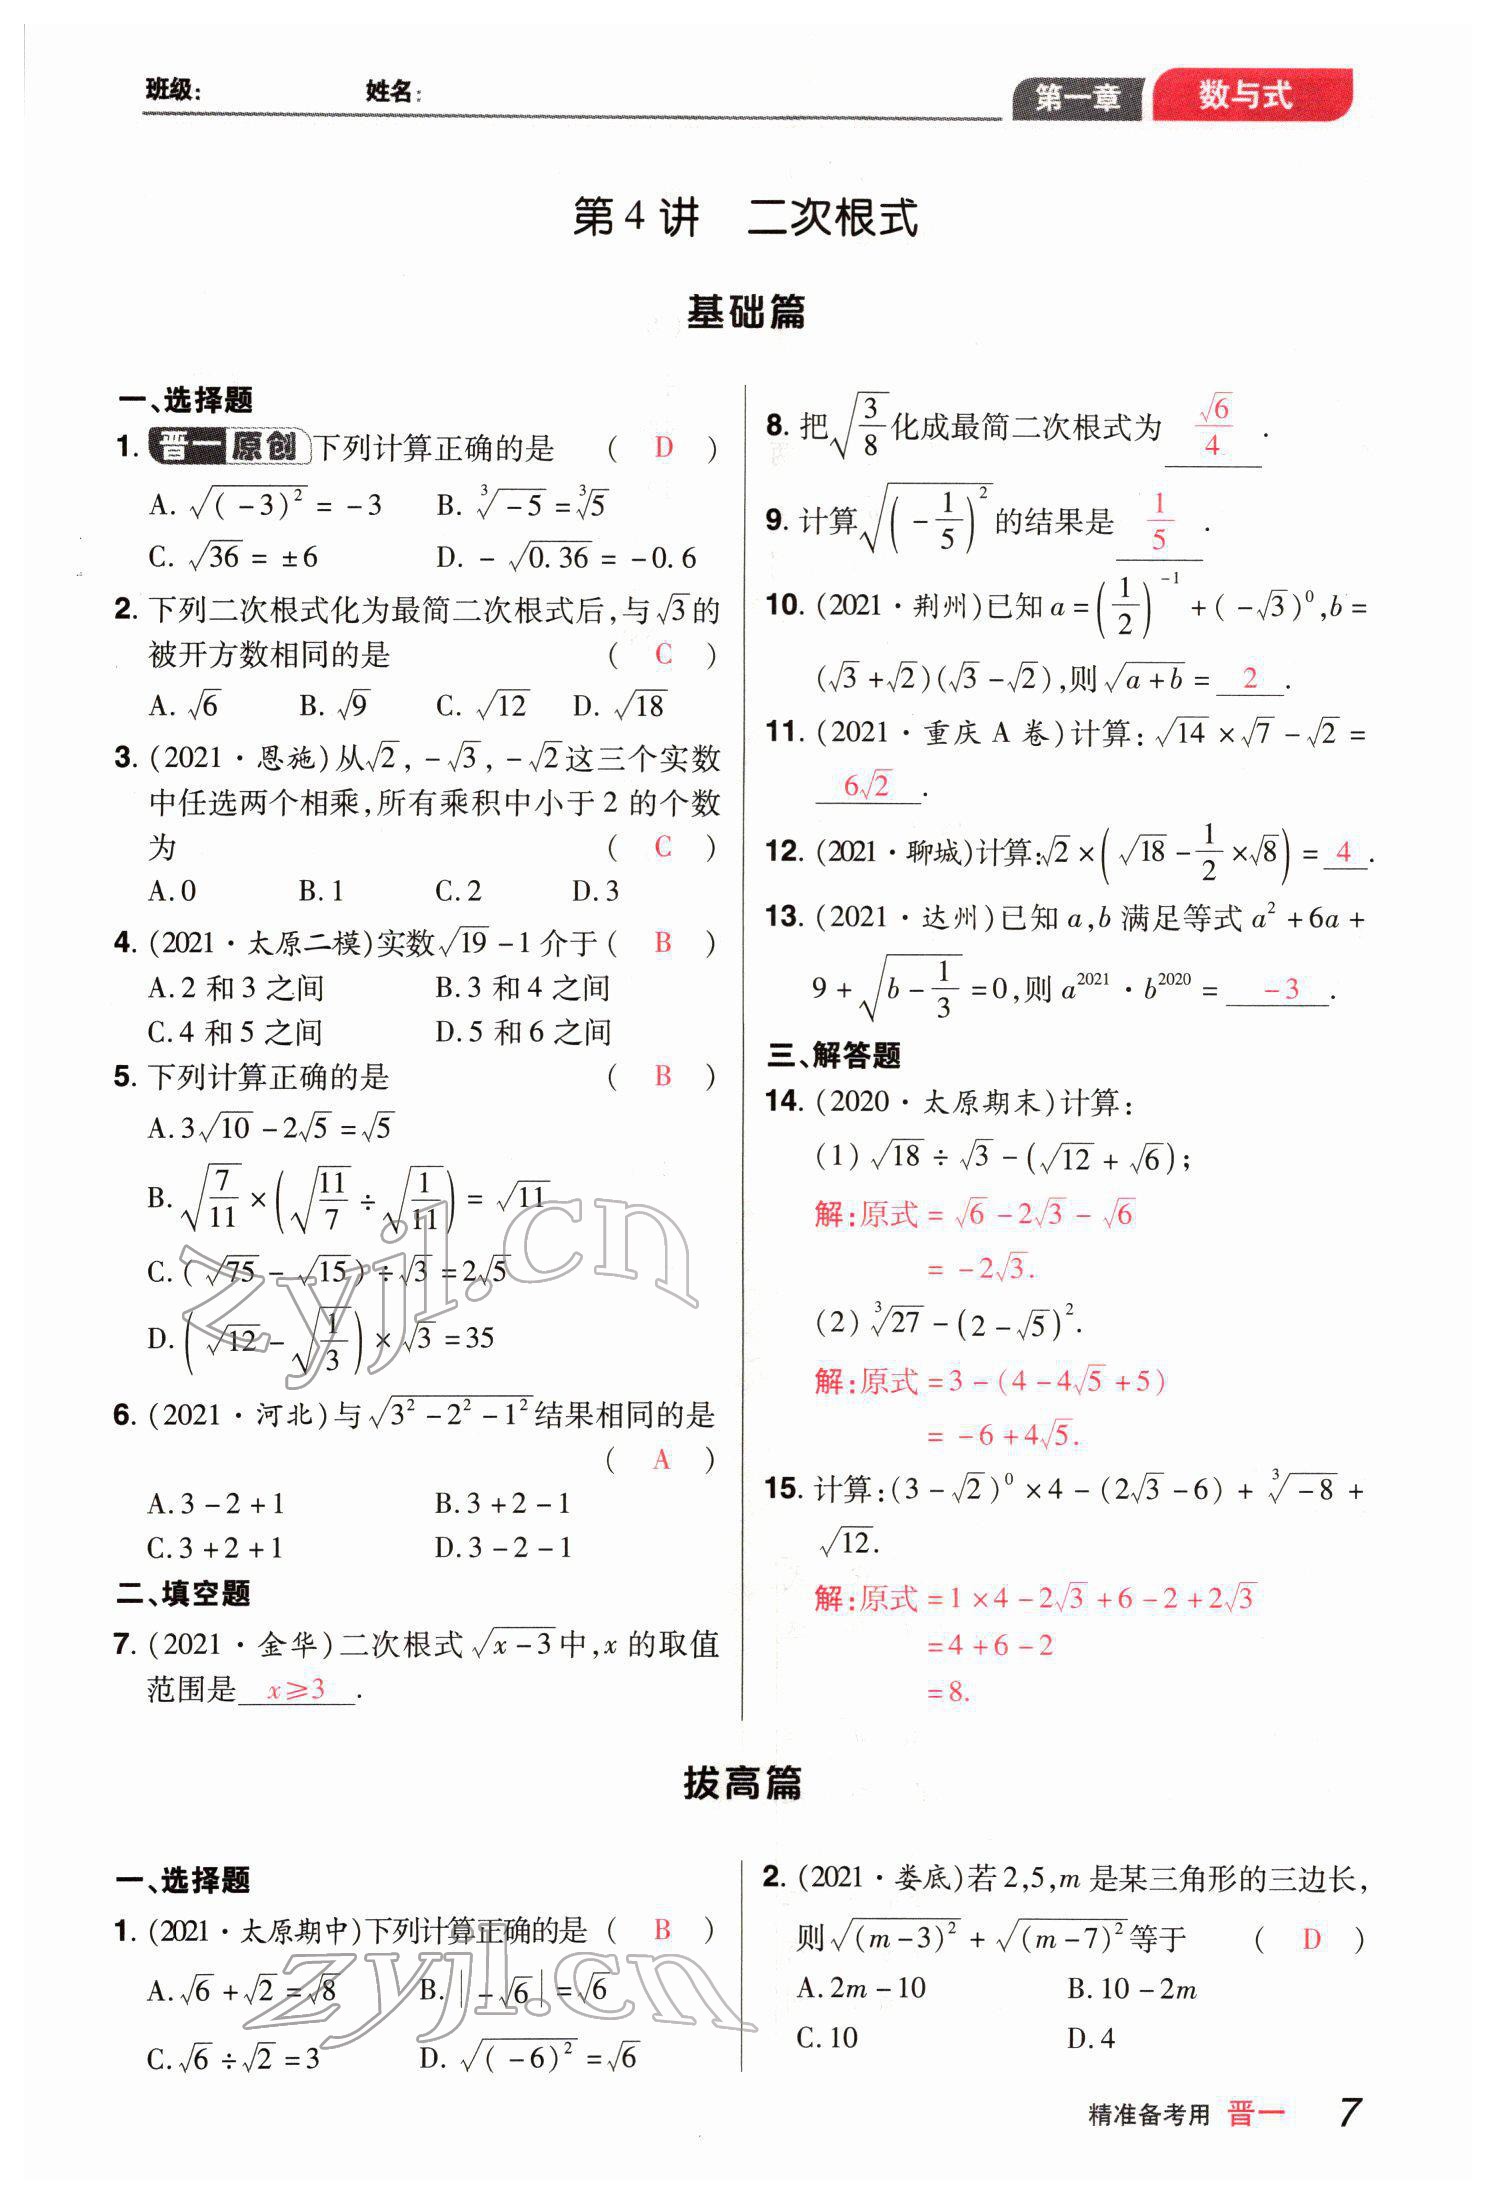 班级:
姓名:
第一章 数与式
第 4 讲 二次根式
基础篇
一、选择题
1. 晋一原创 下列计算正确的是 ( D )
A. √((-3)²) = -3 B. ∛(-5) = ∛5
C. √36 = ±6 D. -√0.36 = -0.6
2. 下列二次根式化为最简二次根式后,与√3的
被开方数相同的是 ( C )
A. √6 B. √9 C. √12 D. √18
3. (2021·恩施)从√2, -√3, -√2这三个实数
中任选两个相乘,所有乘积中小于 2 的个数
为 ( C )
A. 0 B. 1 C. 2 D. 3
4. (2021·太原二模)实数√19 - 1 介于 ( B )
A. 2 和 3 之间 B. 3 和 4 之间
C. 4 和 5 之间 D. 5 和 6 之间
5. 下列计算正确的是 ( B )
A. 3√10 - 2√5 = √5
B. √(7/11) × (√(11/7) ÷ √(1/11)) = √11
C. (√75 - √15) ÷ √3 = 2√5
D. (√12 - √(1/3)) × √3 = 35
6. (2021·河北)与√(3² - 2² - 1²)结果相同的是
( A )
A. 3 - 2 + 1 B. 3 + 2 - 1
C. 3 + 2 + 1 D. 3 - 2 - 1
二、填空题
7. (2021·金华)二次根式√(x-3)中,x 的取值
范围是 x≥3 .
8. 把√(3/8)化成最简二次根式为 √6/4 .
9. 计算√((-1/5)²)的结果是 1/5 .
10. (2021·荆州)已知 a = (1/2)⁻¹ + (-√3)⁰, b =
(√3 + √2)(√3 - √2),则√(a+b) = 2 .
11. (2021·重庆 A 卷)计算: √14 × √7 - √2 =
6√2 .
12. (2021·聊城)计算:√2 × (√18 - 1/2 × √8) = 4 .
13. (2021·达州)已知 a,b 满足等式 a² + 6a +
9 + √(b - 1/3) = 0,则 a²⁰²¹ · b²⁰²⁰ = -3 .
三、解答题
14. (2020·太原期末)计算:
(1) √18 ÷ √3 - (√12 + √6);
解:原式 = √6 - 2√3 - √6
= -2√3.
(2) ∛27 - (2 - √5)².
解:原式 = 3 - (4 - 4√5 + 5)
= -6 + 4√5.
15. 计算: (3 - √2)⁰ × 4 - (2√3 - 6) + ∛(-8) +
√12.
解:原式 = 1 × 4 - 2√3 + 6 - 2 + 2√3
= 4 + 6 - 2
= 8.
拔高篇
一、选择题
1. (2021·太原期中)下列计算正确的是 ( B )
A. √6 + √2 = √8 B. |-√6| = √6
C. √6 ÷ √2 = 3 D. √((-6)²) = √6
2. (2021·娄底)若 2,5,m 是某三角形的三边长,
则√((m-3)²) + √((m-7)²)等于 ( D )
A. 2m - 10 B. 10 - 2m
C. 10 D. 4
精准备考用 晋一 7
zyjl.cn
zyjl.cn